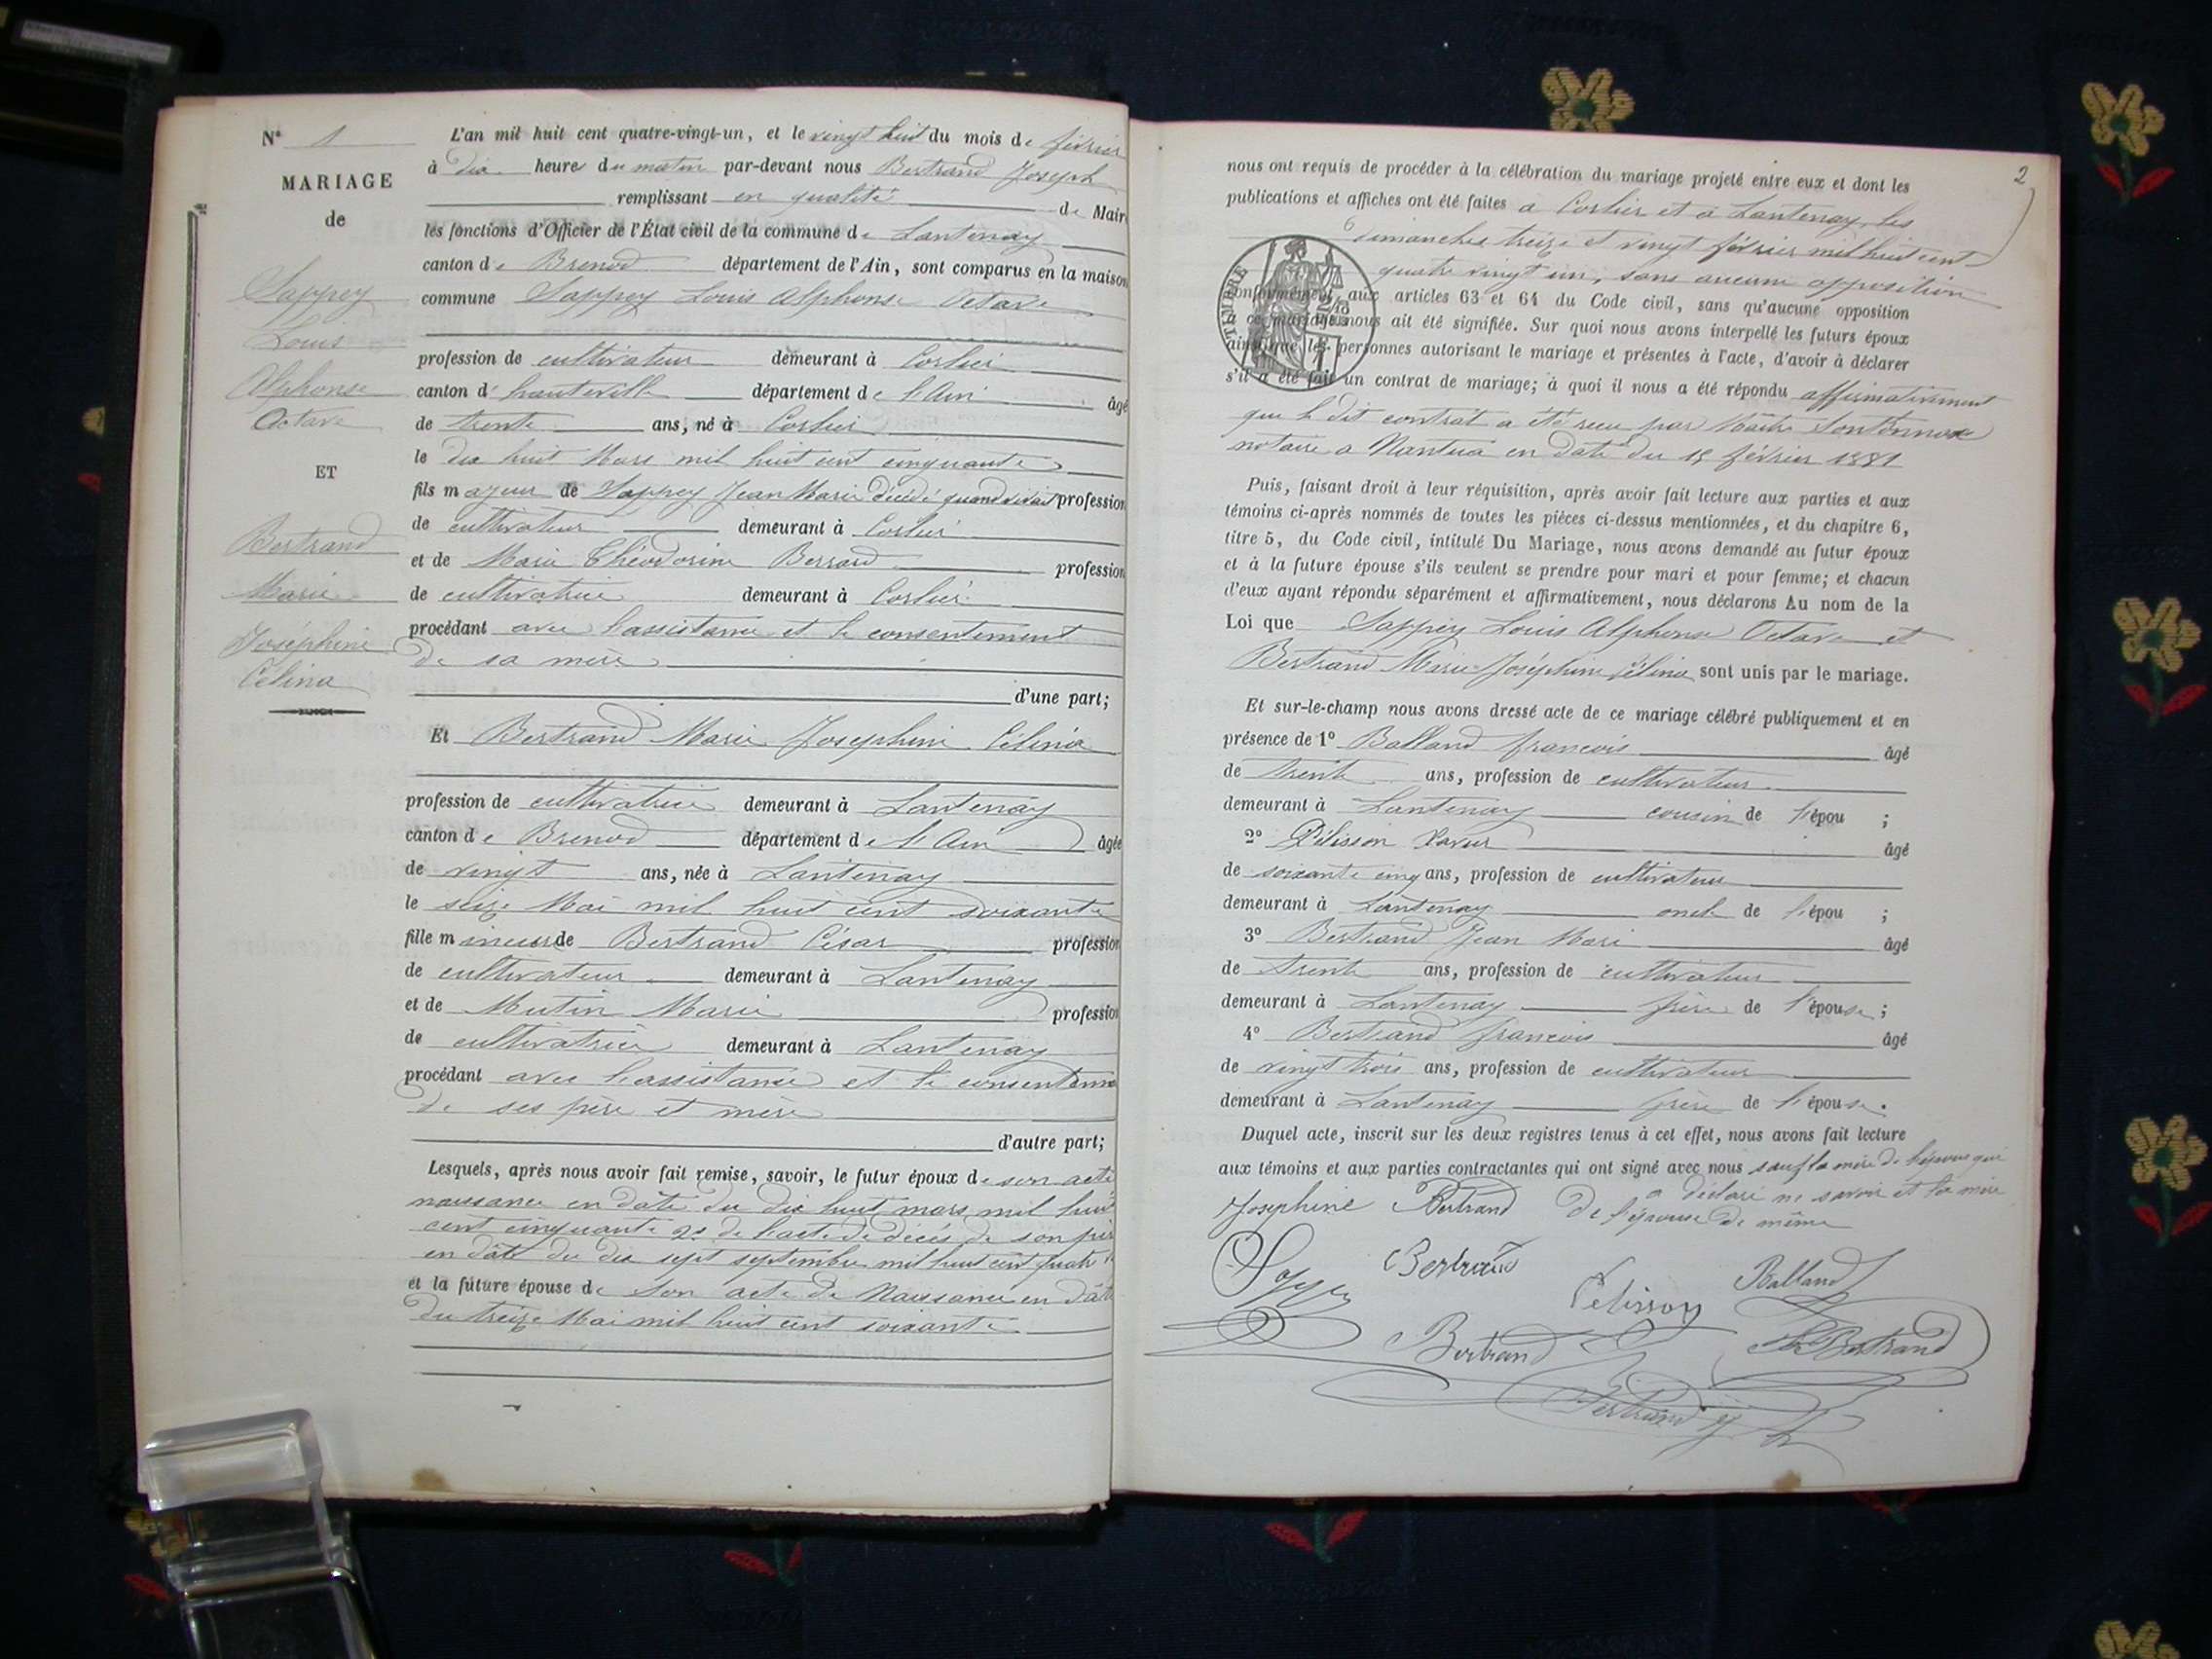 N° 1
MARIAGE
de
Sappey
Louis
Alphonse
Octave
ET
Bertrand
Marie
Joséphine
Célina
L'an mil huit cent quatre-vingt-un, et le vingt huit du mois de février
à dix heures du matin par-devant nous Bertrand Joseph
remplissant en qualité de Maire
les fonctions d'Officier de l'État civil de la commune de Lantenay
canton de Brenod département de l'Ain, sont comparus en la maison
commune Sappey Louis Alphonse Octave
profession de cultivateur demeurant à Corlier
canton d' hauteville département de l'Ain âgé
de trente ans, né à Corlier
le dix huit Mars mil huit cent cinquante
fils majeur de Sappey Jean Marie décédé quand vivait profession
de cultivateur demeurant à Corlier
et de Marie Théodorine Berrard profession
de cultivatrice demeurant à Corlier
procédant avec l'assistance et le consentement
de sa mère
d'une part;
Et Bertrand Marie Josephine Célina
profession de cultivatrice demeurant à Lantenay
canton de Brenod département de l'Ain âgée
de vingt ans, née à Lantenay
le seize Mai mil huit cent soixante
fille mineure de Bertrand César profession
de cultivateur demeurant à Lantenay
et de Mutin Marie profession
de cultivatrice demeurant à Lantenay
procédant avec l'assistance et le consentement
de ses père et mère
d'autre part;
Lesquels, après nous avoir fait remise, savoir, le futur époux de son acte
naissance en date du dix huit mars mil huit
cent cinquante 2° de l'acte de décès de son père
en date du dix sept septembre mil huit cent quatre
et la future épouse de son acte de Naissance en date
du treize Mai mil huit cent soixante
2
nous ont requis de procéder à la célébration du mariage projeté entre eux et dont les
publications et affiches ont été faites a Corlier et à Lantenay, les
dimanches treize et vingt février mil huit cent
quatre vingt un, sans aucune opposition
TIMBRE
conformément aux articles 63 et 64 du Code civil, sans qu'aucune opposition
à ce mariage nous ait été signifiée. Sur quoi nous avons interpellé les futurs époux
ainsi que les personnes autorisant le mariage et présentes à l'acte, d'avoir à déclarer
s'il a été fait un contrat de mariage; à quoi il nous a été répondu affirmativement
que le dit contrat a été reçu par Maître
notaire a Nantua en date du 15 février 1881
Puis, faisant droit à leur réquisition, après avoir fait lecture aux parties et aux
témoins ci-après nommés de toutes les pièces ci-dessus mentionnées, et du chapitre 6,
titre 5, du Code civil, intitulé Du Mariage, nous avons demandé au futur époux
et à la future épouse s'ils veulent se prendre pour mari et pour femme; et chacun
d'eux ayant répondu séparément et affirmativement, nous déclarons Au nom de la
Loi que Sappey Louis Alphonse Octave et
Bertrand Marie Joséphine Célina sont unis par le mariage.
Et sur-le-champ nous avons dressé acte de ce mariage célébré publiquement et en
présence de 1° Balland françois âgé
de trente ans, profession de cultivateur
demeurant à Lantenay cousin de l'épou ;
2° Pélisson Xavier âgé
de soixante cinq ans, profession de cultivateur
demeurant à Lantenay oncle de l'épou ;
3° Bertrand Jean Marie âgé
de trente ans, profession de cultivateur
demeurant à Lantenay frère de l'épouse ;
4° Bertrand françois âgé
de vingt trois ans, profession de cultivateur
demeurant à Lantenay frère de l'épouse.
Duquel acte, inscrit sur les deux registres tenus à cet effet, nous avons fait lecture
aux témoins et aux parties contractantes qui ont signé avec nous sauf la mère de l'époux qui
a déclaré ne savoir et la mère
de l'épouse de même
Josephine Bertrand
Sappey Bertrand Pelisson Balland
Bertrand Bertrand
Bertrand